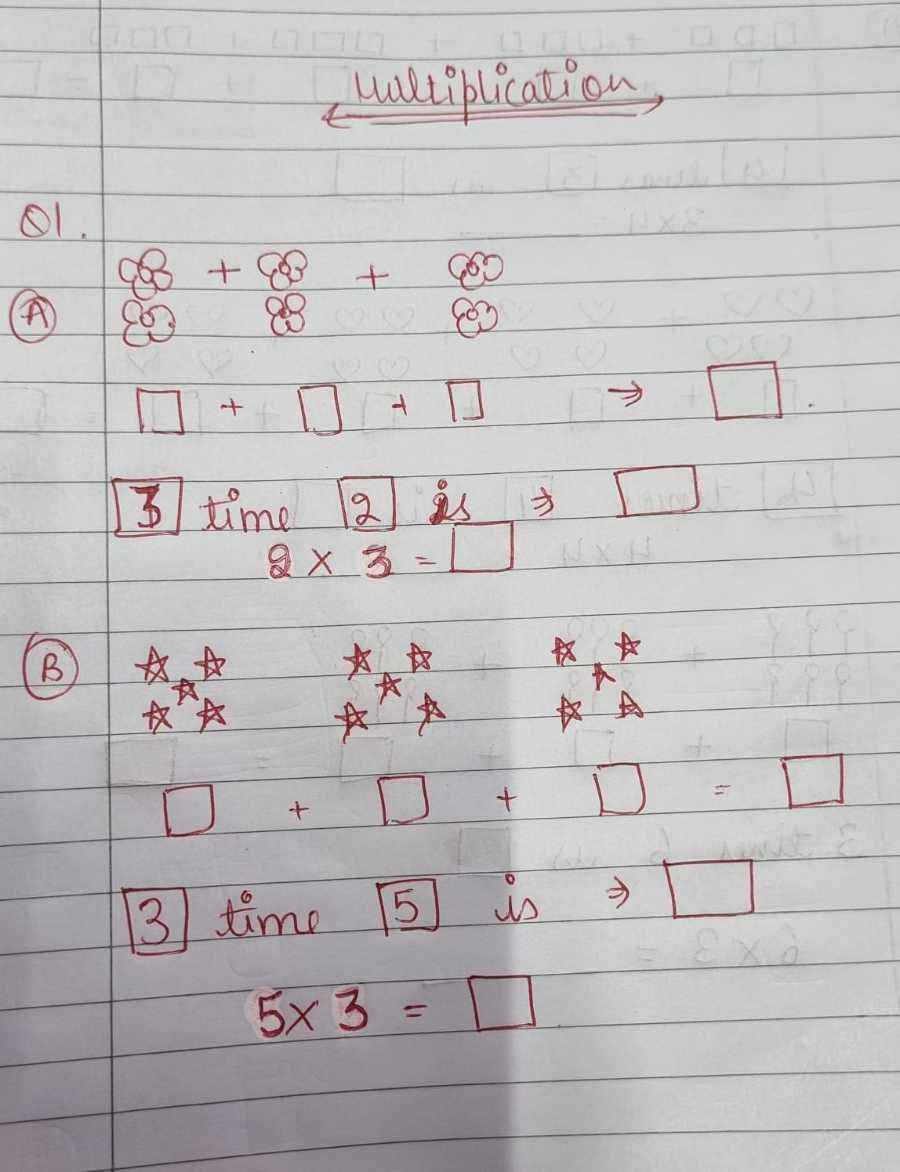 Multiplication
Q1.
+ +
A
+ + ⇒ .
3 time 2 is ⇒
2 × 3 =
B
+ + =
3 time 5 is ⇒
5 × 3 =